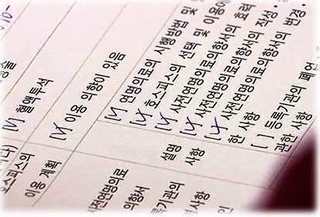 [√] 혈액 투석
스피스의
이용 계획
[√] 이용 의향이 있음
설명
사항
[√] 연명의료의 시행방법 및
[√] 호스피스의 선택 및 이용에
[√] 사전연명의료의향서의 효력
[√] 사전연명의료의향서의 작성·
[√] 사전연명의료의향서의 변경·
한 사항
[ ] 등록기관의 폐업·
관한 사항
사전연명의료
의향서